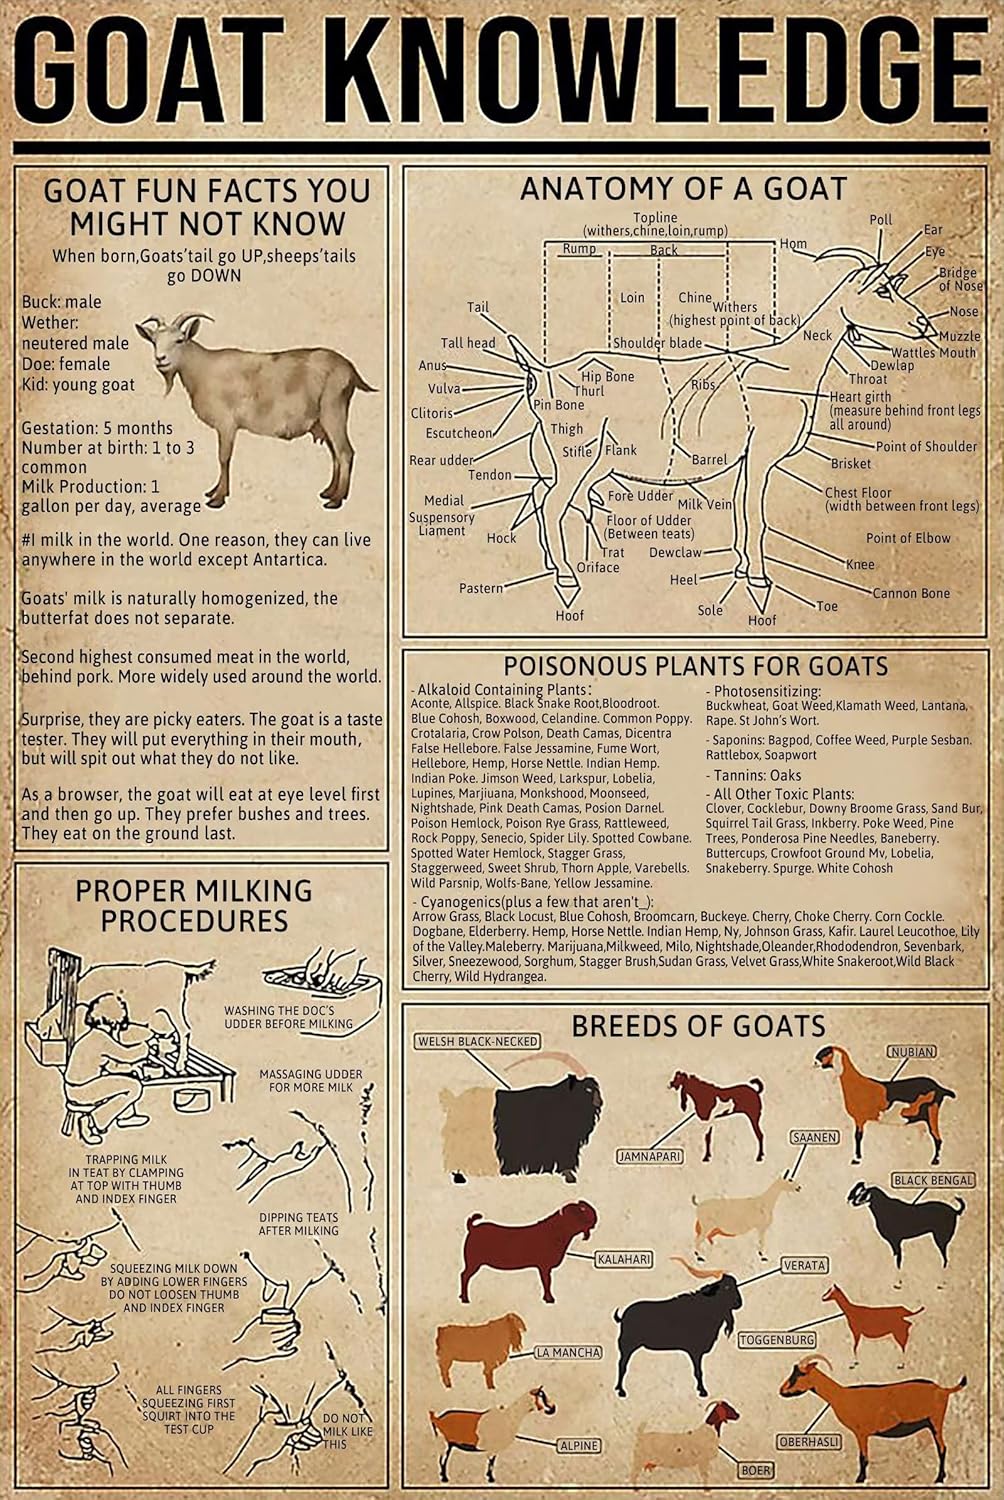 GOAT KNOWLEDGE
GOAT FUN FACTS YOU
MIGHT NOT KNOW
When born,Goats'tail go UP,sheeps'tails
go DOWN
Buck: male
Wether:
neutered male
Doe: female
Kid: young goat
Gestation: 5 months
Number at birth: 1 to 3
common
Milk Production: 1
gallon per day, average
#I milk in the world. One reason, they can live
anywhere in the world except Antartica.
Goats' milk is naturally homogenized, the
butterfat does not separate.
Second highest consumed meat in the world,
behind pork. More widely used around the world.
Surprise, they are picky eaters. The goat is a taste
tester. They will put everything in their mouth,
but will spit out what they do not like.
As a browser, the goat will eat at eye level first
and then go up. They prefer bushes and trees.
They eat on the ground last.
ANATOMY OF A GOAT
Topline
(withers,chine,loin,rump)
Rump
Back
Hom
Poll
Ear
Eye
Bridge
of Nose
Nose
Muzzle
Wattles Mouth
Dewlap
Throat
Neck
Loin
Chine
Withers
(highest point of back)
Shoulder blade
Tail
Tall head
Anus
Vulva
Clitoris
Escutcheon
Rear udder
Tendon
Medial
Suspensory
Liament
Hock
Pastern
Hoof
Hip Bone
Thurl
Pin Bone
Thigh
Stifle
Flank
Ribs
Barrel
Fore Udder
Milk Vein
Floor of Udder
(Between teats)
Trat
Oriface
Heart girth
(measure behind front legs
all around)
Point of Shoulder
Brisket
Chest Floor
(width between front legs)
Point of Elbow
Knee
Cannon Bone
Dewclaw
Heel
Sole
Hoof
Toe
POISONOUS PLANTS FOR GOATS
- Alkaloid Containing Plants:
Aconte, Allspice. Black Snake Root,Bloodroot.
Blue Cohosh, Boxwood, Celandine. Common Poppy.
Crotalaria, Crow Polson, Death Camas, Dicentra
False Hellebore. False Jessamine, Fume Wort,
Hellebore, Hemp, Horse Nettle. Indian Hemp.
Indian Poke. Jimson Weed, Larkspur, Lobelia,
Lupines, Marjiuana, Monkshood, Moonseed,
Nightshade, Pink Death Camas, Posion Darnel.
Poison Hemlock, Poison Rye Grass, Rattleweed,
Rock Poppy, Senecio, Spider Lily. Spotted Cowbane.
Spotted Water Hemlock, Stagger Grass,
Staggerweed, Sweet Shrub, Thorn Apple, Varebells.
Wild Parsnip, Wolfs-Bane, Yellow Jessamine.
- Photosensitizing:
Buckwheat, Goat Weed,Klamath Weed, Lantana,
Rape. St John's Wort.
- Saponins: Bagpod, Coffee Weed, Purple Sesban.
Rattlebox, Soapwort
- Tannins: Oaks
- All Other Toxic Plants:
Clover, Cocklebur, Downy Broome Grass, Sand Bur,
Squirrel Tail Grass, Inkberry. Poke Weed, Pine
Trees, Ponderosa Pine Needles, Baneberry.
Buttercups, Crowfoot Ground Mv, Lobelia,
Snakeberry. Spurge. White Cohosh
- Cyanogenics(plus a few that aren't_):
Arrow Grass, Black Locust, Blue Cohosh, Broomcarn, Buckeye. Cherry, Choke Cherry. Corn Cockle.
Dogbane, Elderberry. Hemp, Horse Nettle. Indian Hemp, Ny, Johnson Grass, Kafir. Laurel Leucothoe, Lily
of the Valley.Maleberry. Marijuana,Milkweed, Milo, Nightshade,Oleander,Rhododendron, Sevenbark,
Silver, Sneezewood, Sorghum, Stagger Brush,Sudan Grass, Velvet Grass,White Snakeroot,Wild Black
Cherry, Wild Hydrangea.
PROPER MILKING
PROCEDURES
WASHING THE DOC'S
UDDER BEFORE MILKING
MASSAGING UDDER
FOR MORE MILK
TRAPPING MILK
IN TEAT BY CLAMPING
AT TOP WITH THUMB
AND INDEX FINGER
DIPPING TEATS
AFTER MILKING
SQUEEZING MILK DOWN
BY ADDING LOWER FINGERS
DO NOT LOOSEN THUMB
AND INDEX FINGER
ALL FINGERS
SQUEEZING FIRST
SQUIRT INTO THE
TEST CUP
DO NOT
MILK LIKE
THIS
BREEDS OF GOATS
WELSH BLACK-NECKED
NUBIAN
JAMNAPARI
SAANEN
BLACK BENGAL
KALAHARI
VERATA
TOGGENBURG
LA MANCHA
ALPINE
BOER
OBERHASLI